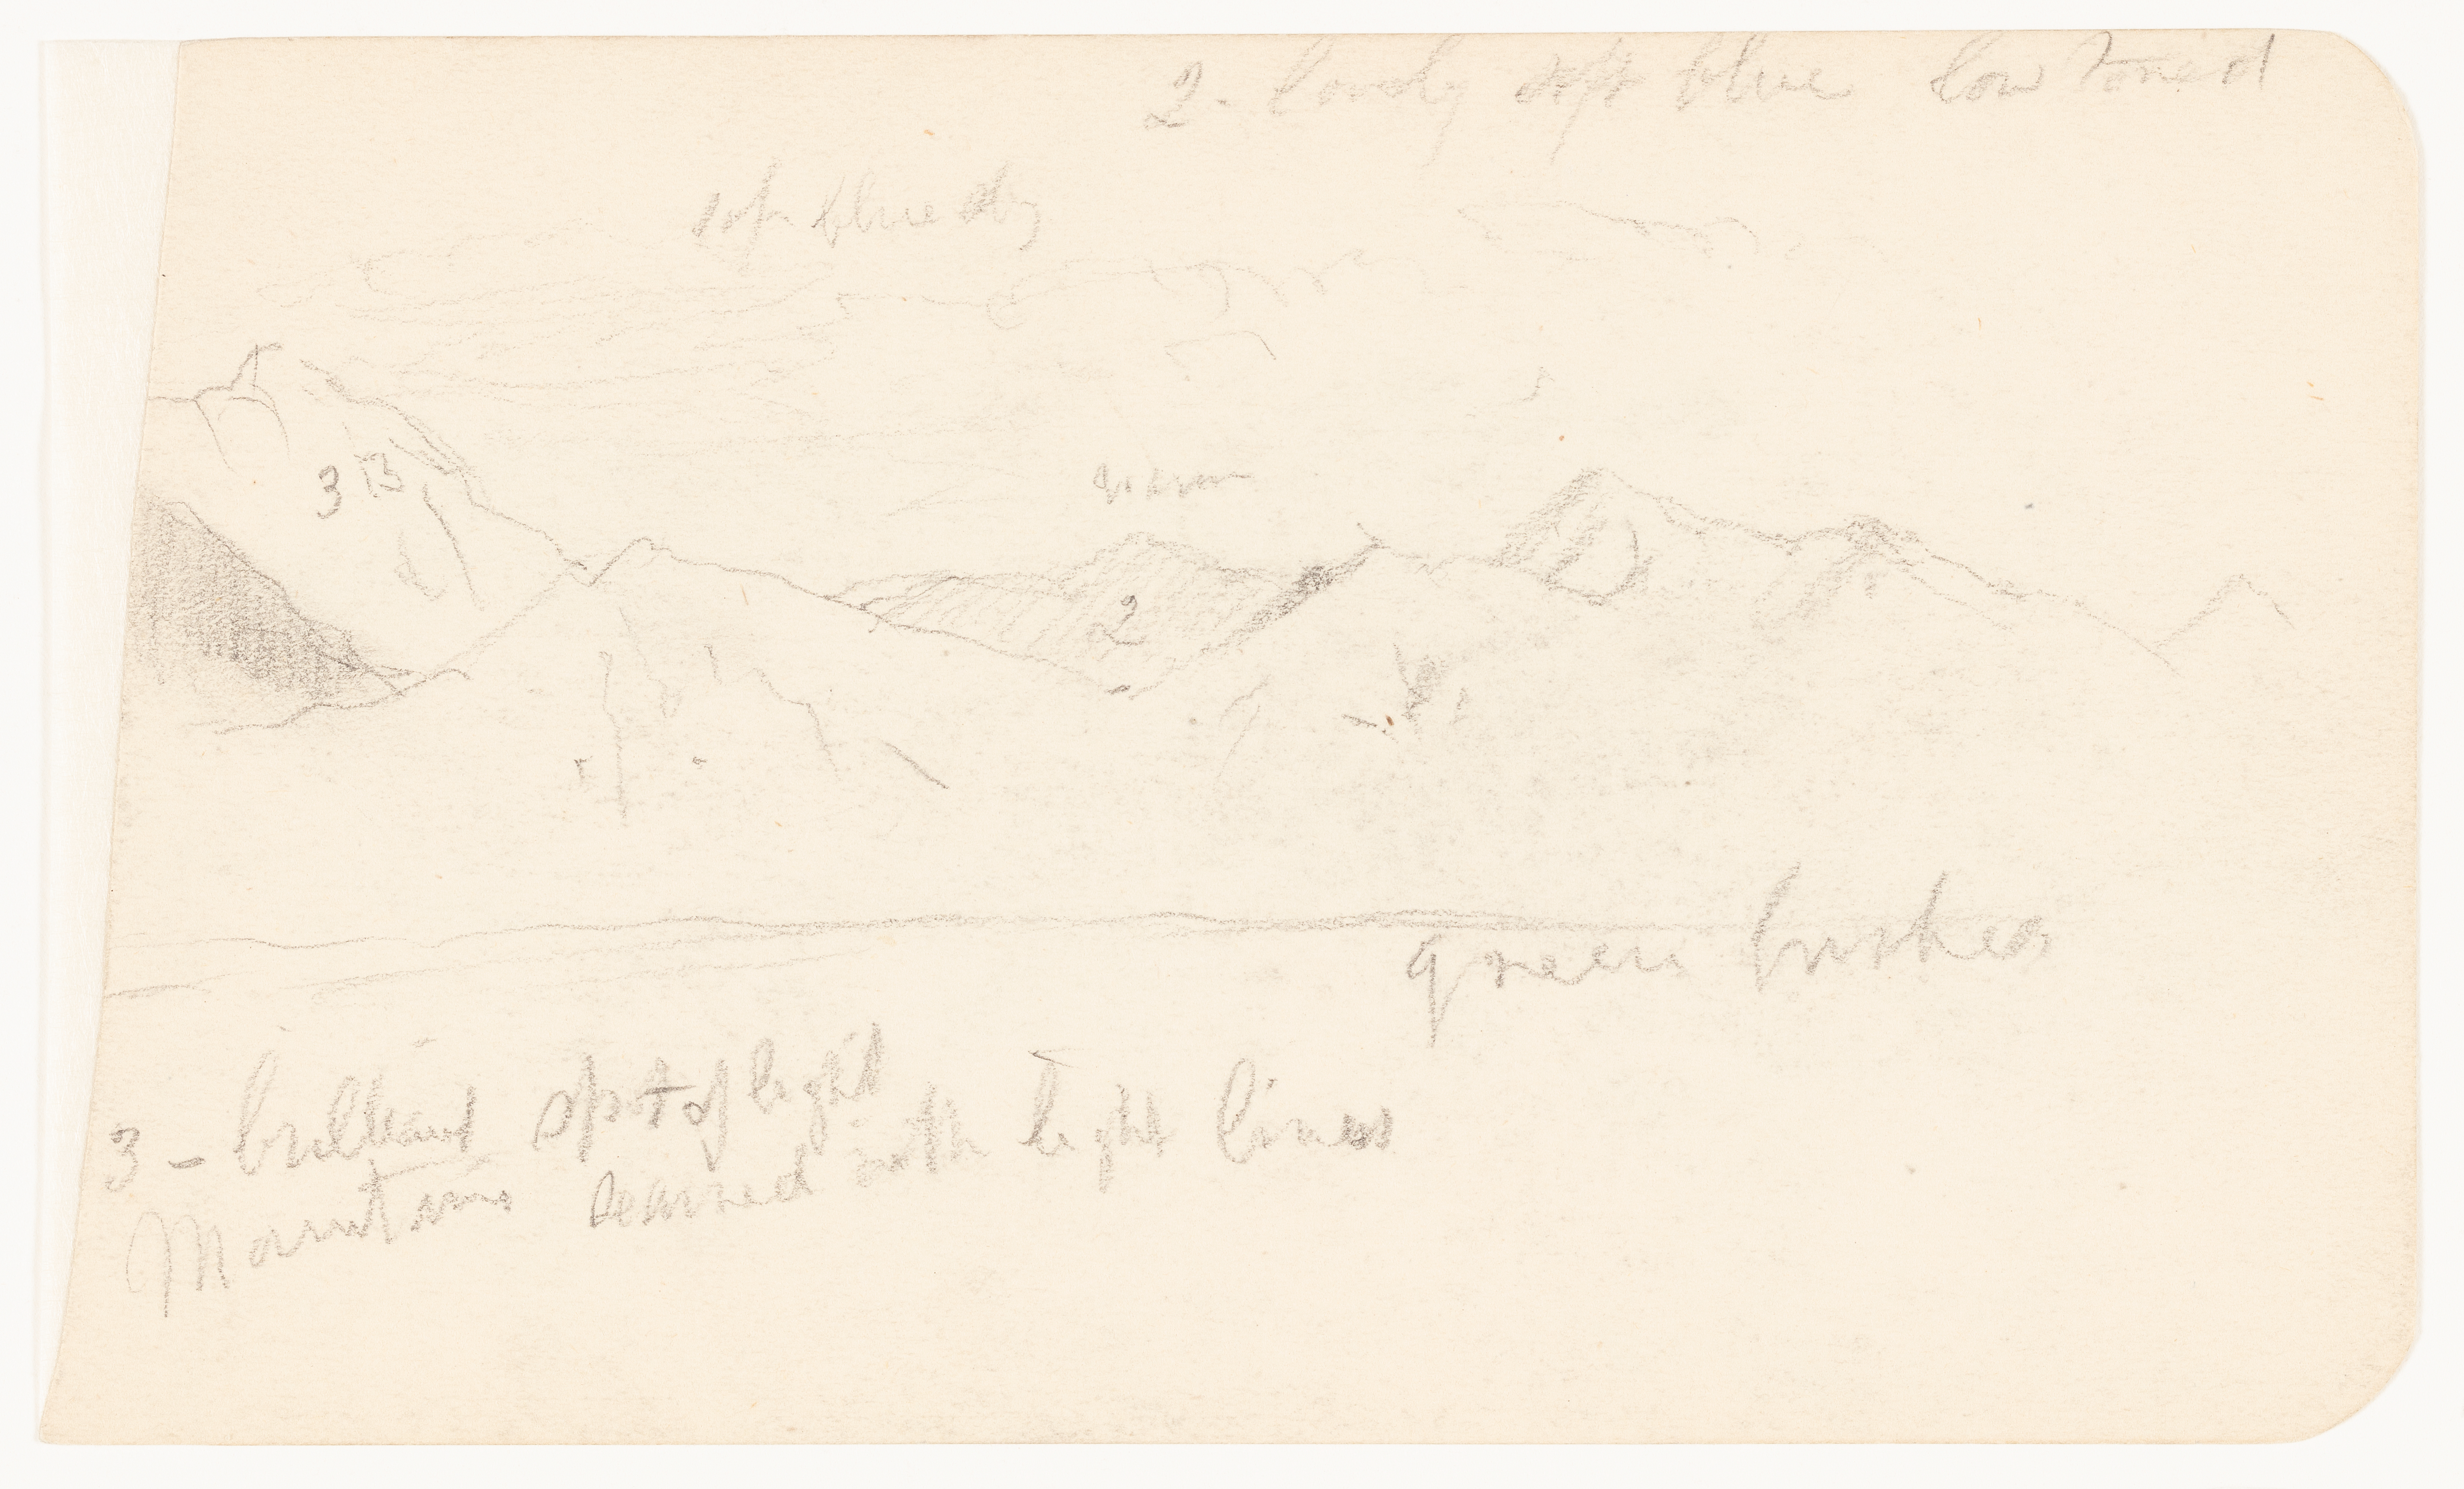 2 - lovely soft blue low toned
soft blue sky
warm
3 B
2
green bushes
3 - brilliant spot of light
Mountains seamed with light lines